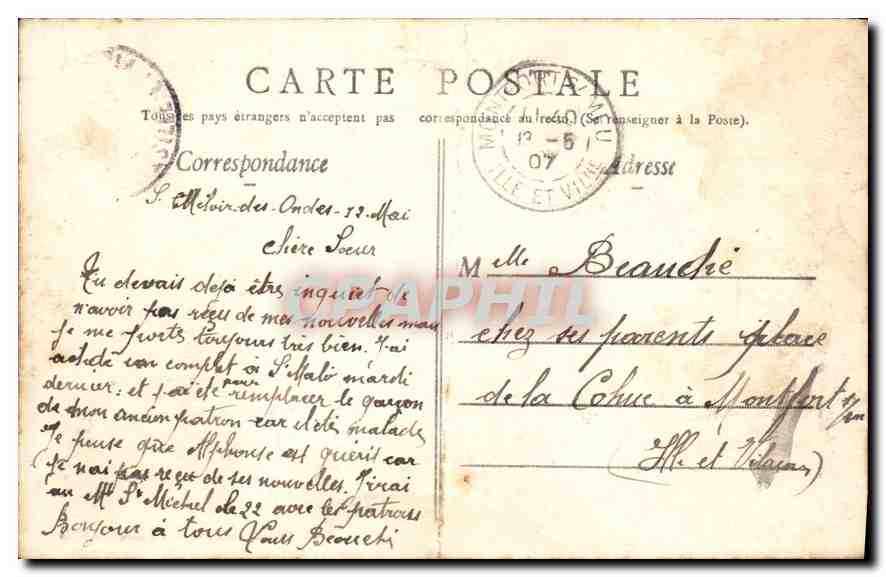 CARTE POSTALE
Tous les pays étrangers n'acceptent pas correspondance au recto. (Se renseigner à la Poste).
Correspondance
S. Méloir-des-Ondes-12-Mai
chère Sœur
Tu devais déjà être inquiet de
n'avoir pas réçu de mes nouvelles mais
je me porte toujours très bien. J'ai
acheté un complet à St Malo mardi
dernier; et j'ai été pour remplacer le garçon
de mon ancien patron car il été malade
Je pense que Alphonse est guéris car
je n'ai pas reçu de ses nouvelles. J'irai
au Mt St Michel le 22 avec les patrons
Bonjour à tous Beauché
MONTFORT-S-MEU
13 -5
07
ILLE ET VILNE
Adresse
Melle Beauché
chez ses parents place
de la Cohue à Montfort s/m
(Ille et Vilaine)
CPAPHIL